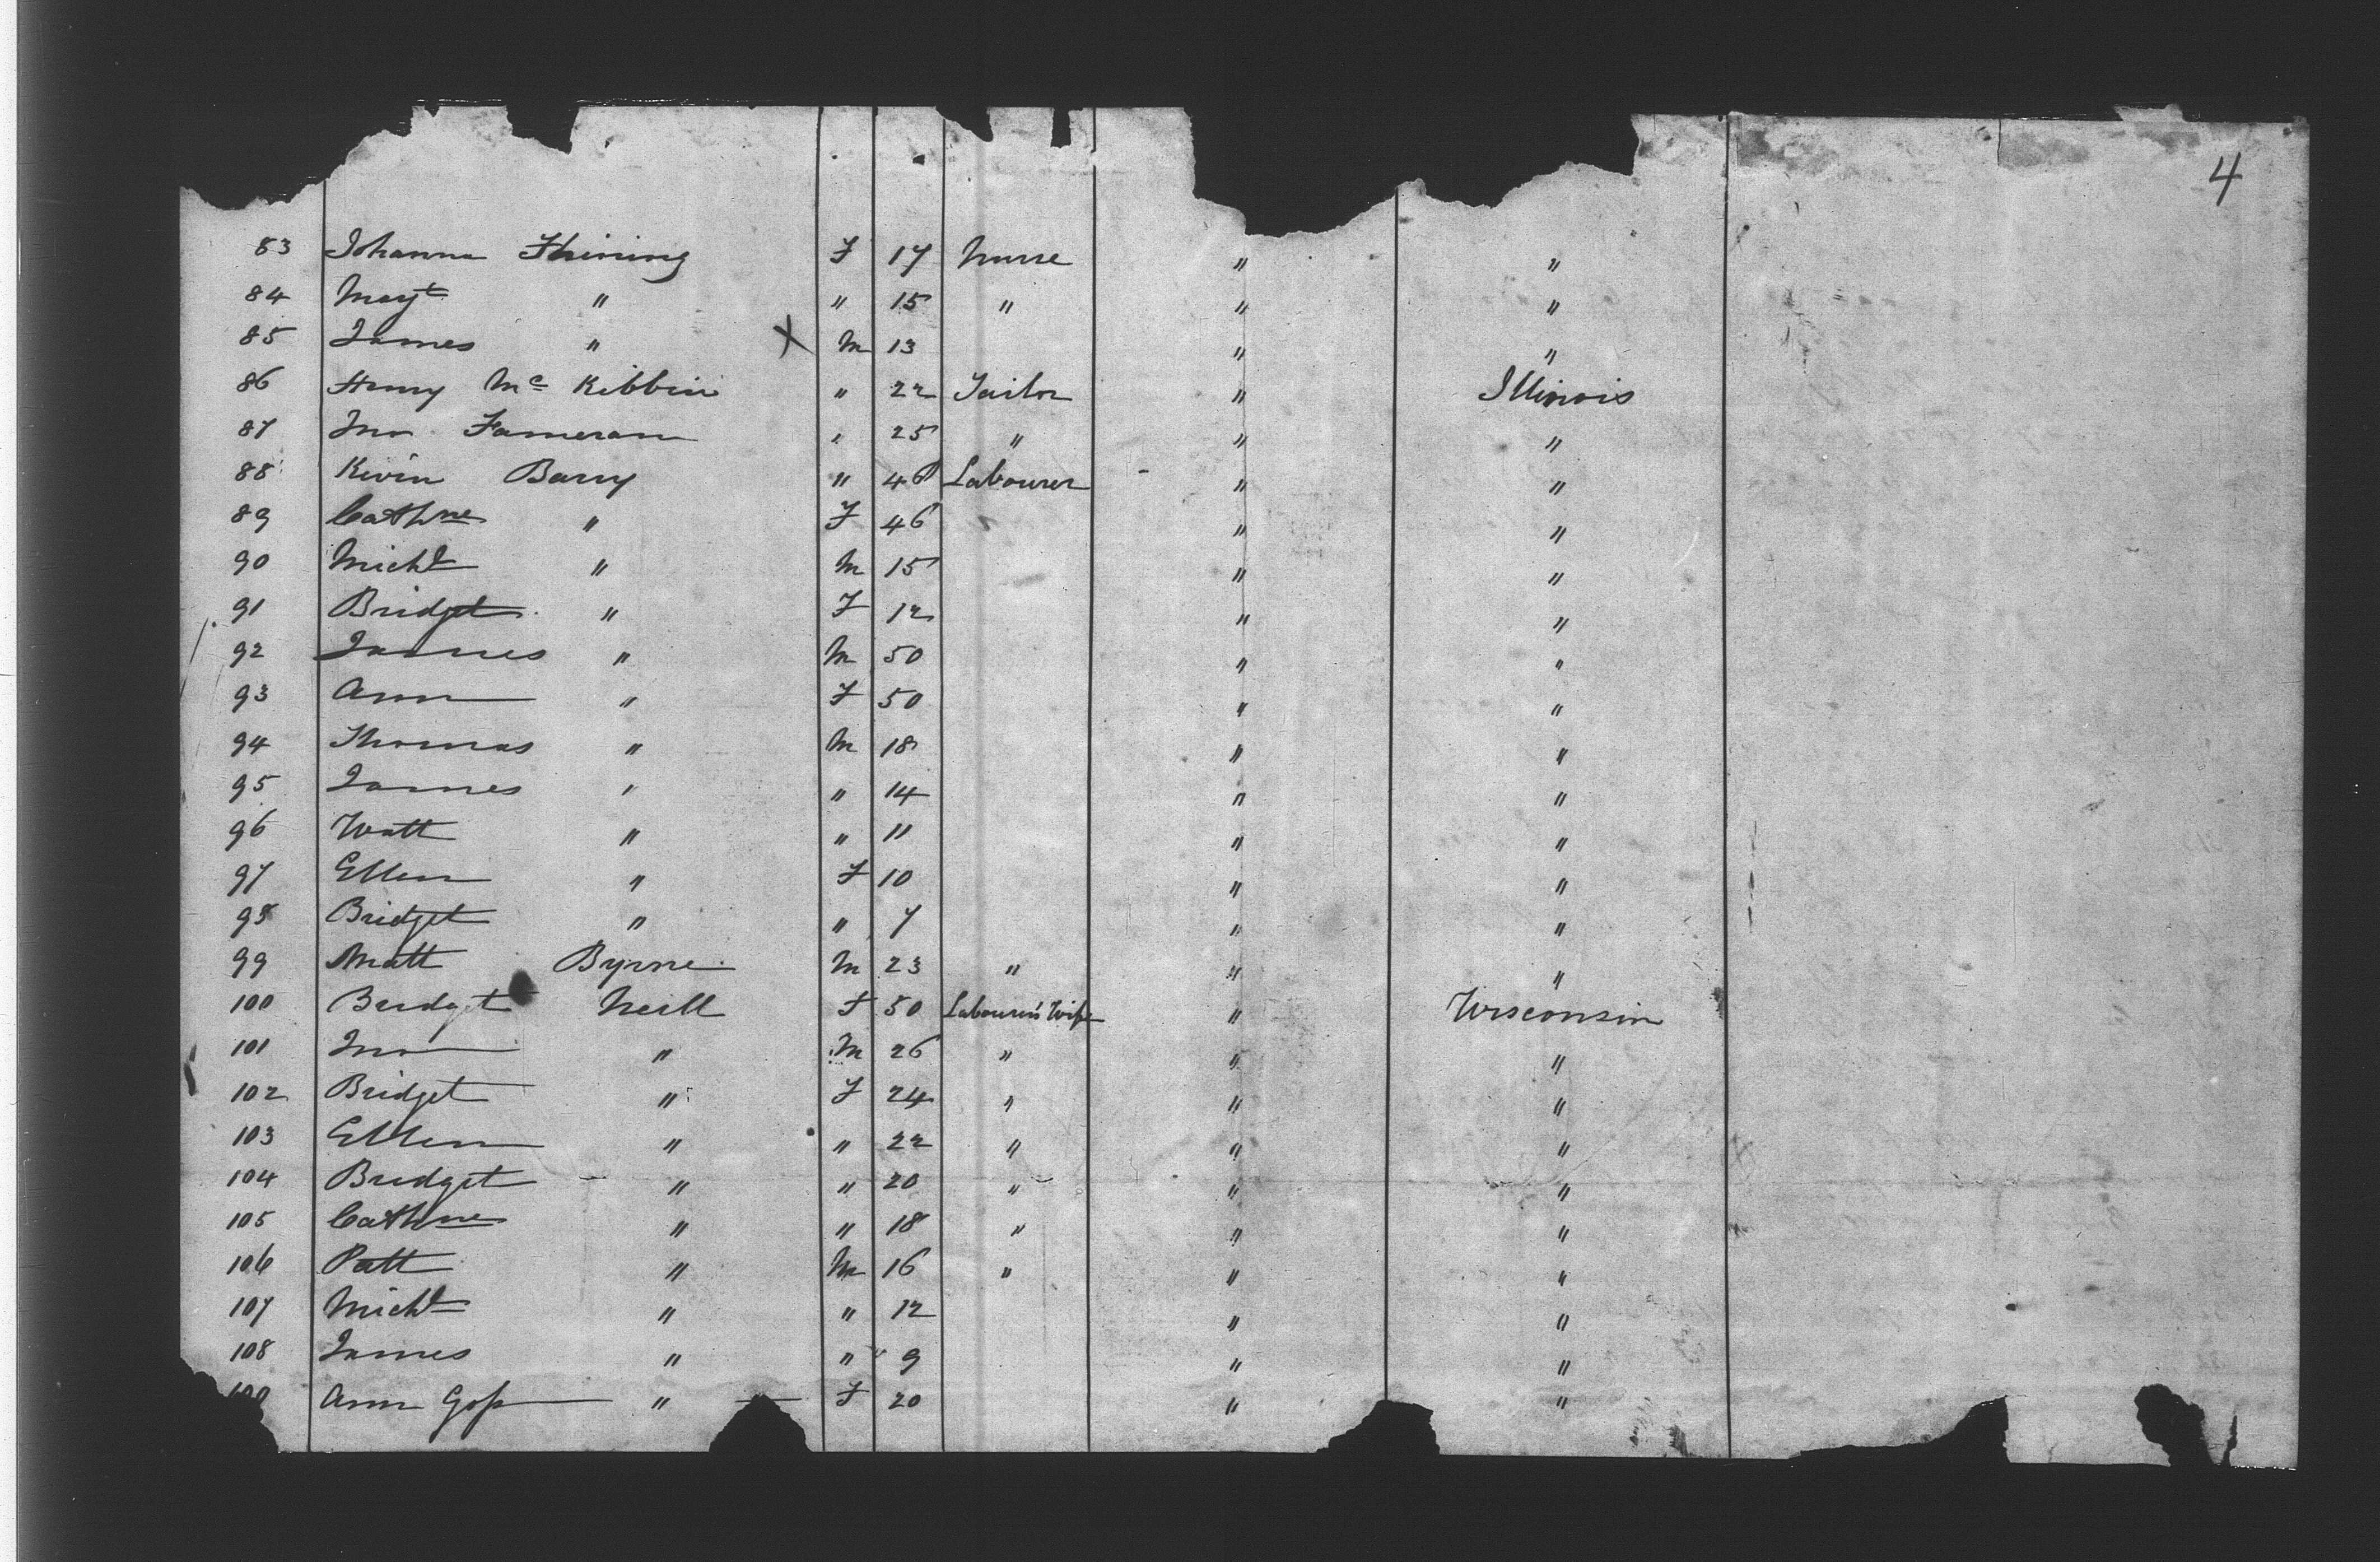 4
83 Johanna Thining F 17 Nurse " "
84 Magt " " 15 " " "
85 James " X M 13 " "
86 Henry Mc Kibbin " 22 Tailor " Illinois
87 Jno Fameran " 25 " " "
88 Kevin Barry " 46 Labourer " "
89 Cathne " F 46 " "
90 Michl " M 15 " "
91 Bridget " F 12 " "
92 James " M 50 " "
93 Ann " F 50 " "
94 Thomas " M 18 " "
95 James " " 14 " "
96 Watt " " 11 " "
97 Ellen " F 10 " "
98 Bridget " " 7 " "
99 Matt Byrne M 23 " " "
100 Bridget Neill F 50 Labourer's Wife " Wisconsin
101 Jno " M 26 " " "
102 Bridget " F 24 " " "
103 Ellen " " 22 " " "
104 Bridget " " 20 " " "
105 Cathne " " 18 " " "
106 Patt " M 16 " " "
107 Michl " " 12 " "
108 James " " 9 " "
Ann Goss " F 20 " "